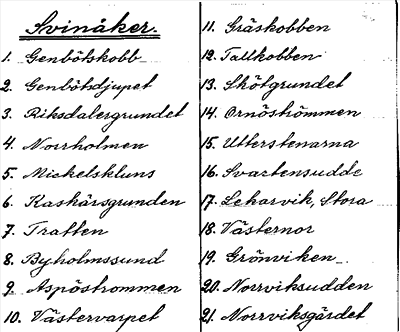 Svinåker.
1. Genbötskobb
2. Genbötsdjupet
3. Riksdalergrundet
4. Norrholmen
5. Mickelskluns
6. Kaskärsgrunden
7. Tratten
8. Byholmssund
9. Aspöströmmen
10. Västervarpet
11. Gräskobben
12. Tallkobben
13. Skötgrundet
14. Ornöströmmen
15. Utterstenarna
16. Svartensudde
17. Lekarvik, Stora
18. Västernor
19. Grönviken
20. Norrviksudden
21. Norrviksgärdet